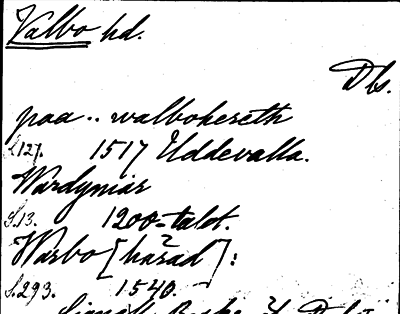 Valbo hd.
Dbs.
paa .. walbohereth
S.127. 1517 Uddevalla.
Wardyniar
S.13. 1200-talet.
Warbo [härad]:
S.293. 1540.